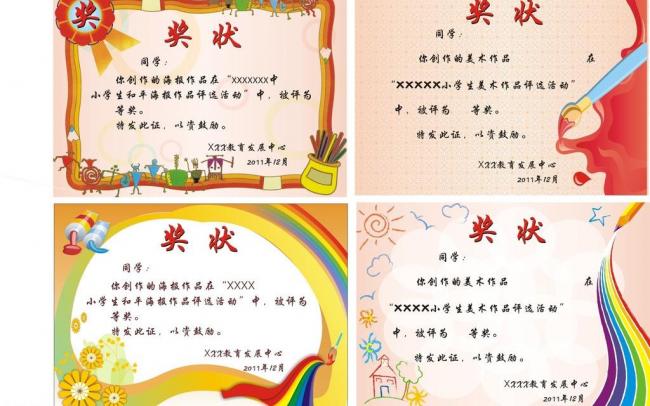 奖
奖 状
同学：
你创作的海报作品在“XXXXXXX中
小学生和平海报作品评选活动”中，被评为
等奖。
特发此证，以资鼓励。
XXX教育发展中心
2011年12月
奖 状
同学：
你创作的美术作品 在
“XXXXX小学生美术作品评选活动”
中，被评为 等奖。
特发此证，以资鼓励。
XXX教育发展中心
2011年12月
奖 状
同学：
你创作的海报作品在“XXXX
小学生和平海报作品评选活动”中，被评为
等奖。
特发此证，以资鼓励。
XXX教育发展中心
2011年12月
奖 状
同学：
你创作的美术作品 在
“XXXX小学生美术作品评选活动”
中，被评为 等奖。
特发此证，以资鼓励。
XXXX教育发展中心
2011年12月